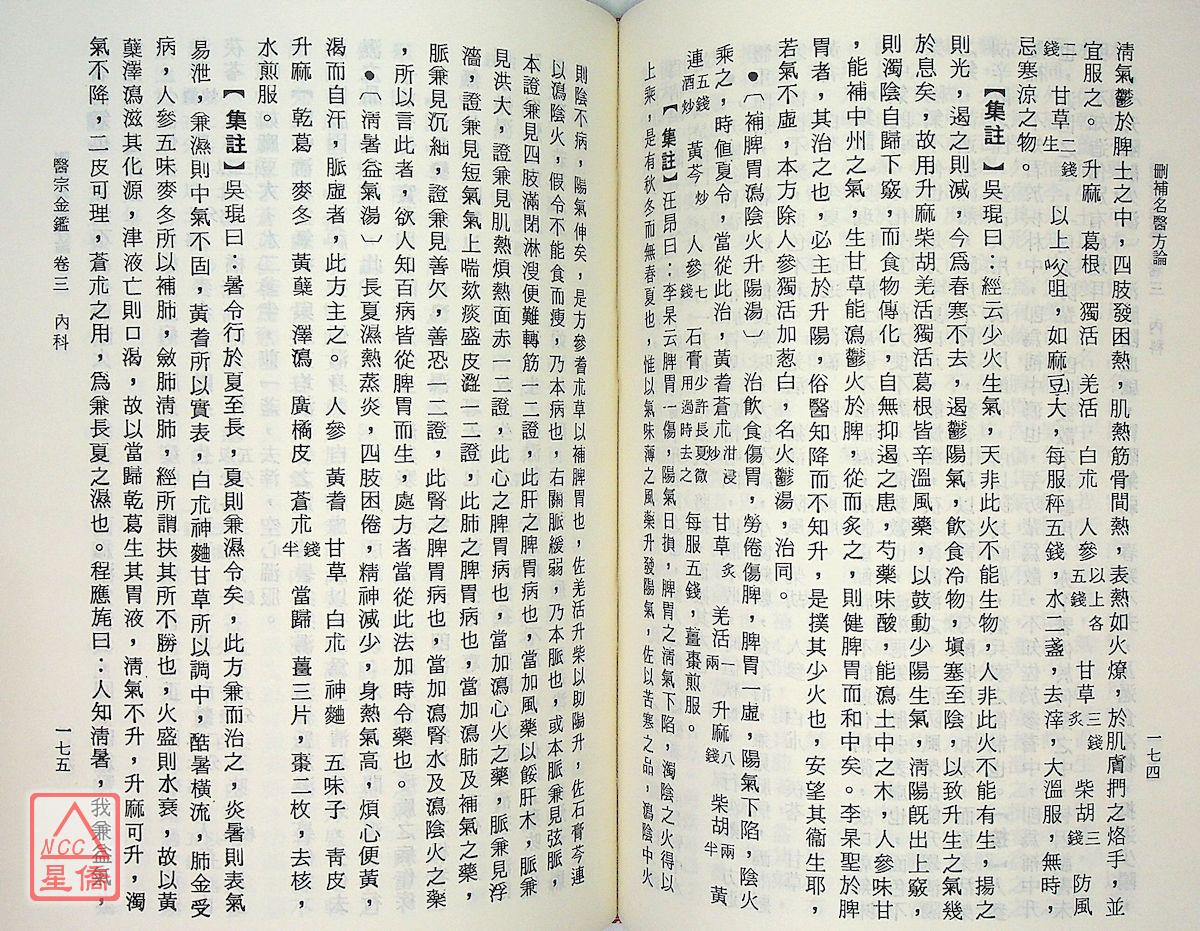 刪補名醫方論
一七四
清氣鬱於脾土之中，四肢發困熱，肌熱筋骨間熱，表熱如火燎，於肌膚捫之烙手，並
宜服之。 升麻 葛根 獨活 羌活 白朮 人參以上各五錢 甘草炙三錢 柴胡三錢 防風
二錢 甘草生二錢 以上㕮咀，如麻豆大，每服秤五錢，水二盞，去滓，大溫服，無時，
忌寒涼之物。
【集註】吳琨曰：經云少火生氣，天非此火不能生物，人非此火不能有生，揚之
則光，遏之則滅，今為春寒不去，遏鬱陽氣，飲食冷物，塡塞至陰，以致升生之氣幾
於息矣，故用升麻柴胡羌活獨活葛根皆辛溫風藥，以鼓動少陽生氣，清陽旣出上竅，
則濁陰自歸下竅，而食物傳化，自無抑遏之患，芍藥味酸，能瀉土中之木，人參味甘
，能補中州之氣，生甘草能瀉鬱火於脾，從而炙之，則健脾胃而和中矣。李杲聖於脾
胃者，其治之也，必主於升陽，俗醫知降而不知升，是撲其少火也，安望其衞生耶，
若氣不虛，本方除人參獨活加葱白，名火鬱湯，治同。
●〔補脾胃瀉陰火升陽湯〕 治飲食傷胃，勞倦傷脾，脾胃一虛，陽氣下陷，陰火
乘之，時値夏令，當從此治，黃耆蒼朮泔浸炒 甘草炙 羌活一兩 升麻八錢 柴胡兩半 黃
連五錢酒炒 黃芩炒 人參七錢 石膏少許長夏微用過時去之 每服五錢，薑棗煎服。
【集註】汪昂曰：李杲云脾胃一傷，陽氣日損，脾胃之清氣下陷，濁陰之火得以
上乘，是有秋冬而無春夏也，惟以氣味薄之風藥升發陽氣，佐以苦寒之品，瀉陰中火
則陰不病，陽氣伸矣，是方參耆朮草以補脾胃也，佐羌活升柴以助陽升，佐石膏芩連
以瀉陰火，假令不能食而瘦，乃本病也，右關脈緩弱，乃本脈也，或本脈兼見弦脈，
本證兼見四肢滿閉淋溲便難轉筋一二證，此肝之脾胃病也，當加風藥以餒肝木，脈兼
見洪大，證兼見肌熱煩熱面赤一二證，此心之脾胃病也，當加瀉心火之藥，脈兼見浮
濇，證兼見短氣氣上喘欬痰盛皮澀一二證，此肺之脾胃病也，當加瀉肺及補氣之藥，
脈兼見沉細，證兼見善欠，善恐一二證，此腎之脾胃病也，當加瀉腎水及瀉陰火之藥
，所以言此者，欲人知百病皆從脾胃而生，處方者當從此法加時令藥也。
●〔清暑益氣湯〕長夏濕熱蒸炎，四肢困倦，精神減少，身熱氣高，煩心便黃，
渴而自汗，脈虛者，此方主之。人參 黃耆 甘草 白朮 神麯 五味子 青皮去
升麻 乾葛 麥冬 黃蘗 澤瀉 廣橘皮 蒼朮錢半 當歸 薑三片，棗二枚，去核，
水煎服。
【集註】吳琨曰：暑令行於夏至長，夏則兼濕令矣，此方兼而治之，炎暑則表氣
易泄，兼濕則中氣不固，黃耆所以實表，白朮神麯甘草所以調中，酷暑橫流，肺金受
病，人參五味麥冬所以補肺，斂肺清肺，經所謂扶其所不勝也，火盛則水衰，故以黃
蘗澤瀉滋其化源，津液亡則口渴，故以當歸乾葛生其胃液，清氣不升，升麻可升，濁
氣不降，二皮可理，蒼朮之用，為兼長夏之濕也。程應旄曰：人知清暑，我兼益氣，
醫宗金鑑 卷三 內科
一七五
NCC
星僑